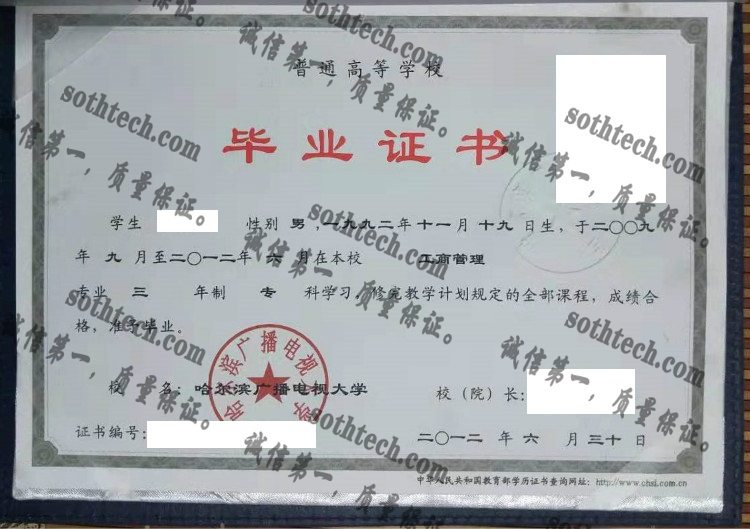 普通高等学校
毕业证书
学生 性别 男，一九九二年十一月十九日生，于二〇〇九
年 九 月至二〇一二年 六 月在本校 工商管理
专业 三 年制 专 科学习，修完教学计划规定的全部课程，成绩合
格，准予毕业。
校 名：哈尔滨广播电视大学
校（院）长：
证书编号：
二〇一二 年 六 月 三十 日
中华人民共和国教育部学历证书查询网址：http://www.chsi.com.cn
哈尔滨广播电视大学
sothtech.com
诚信第一，质量保证。
sothtech.com
诚信第一，质量保证。
sothtech.com
诚信第一，质量保证。
sothtech.com
诚信第一，质量保证。
sothtech.com
诚信第一，质量保证。
sothtech.com
诚信第一，质量保证。
sothtech.com
诚信第一，质量保证。
sothtech.com
诚信第一，质量保证。